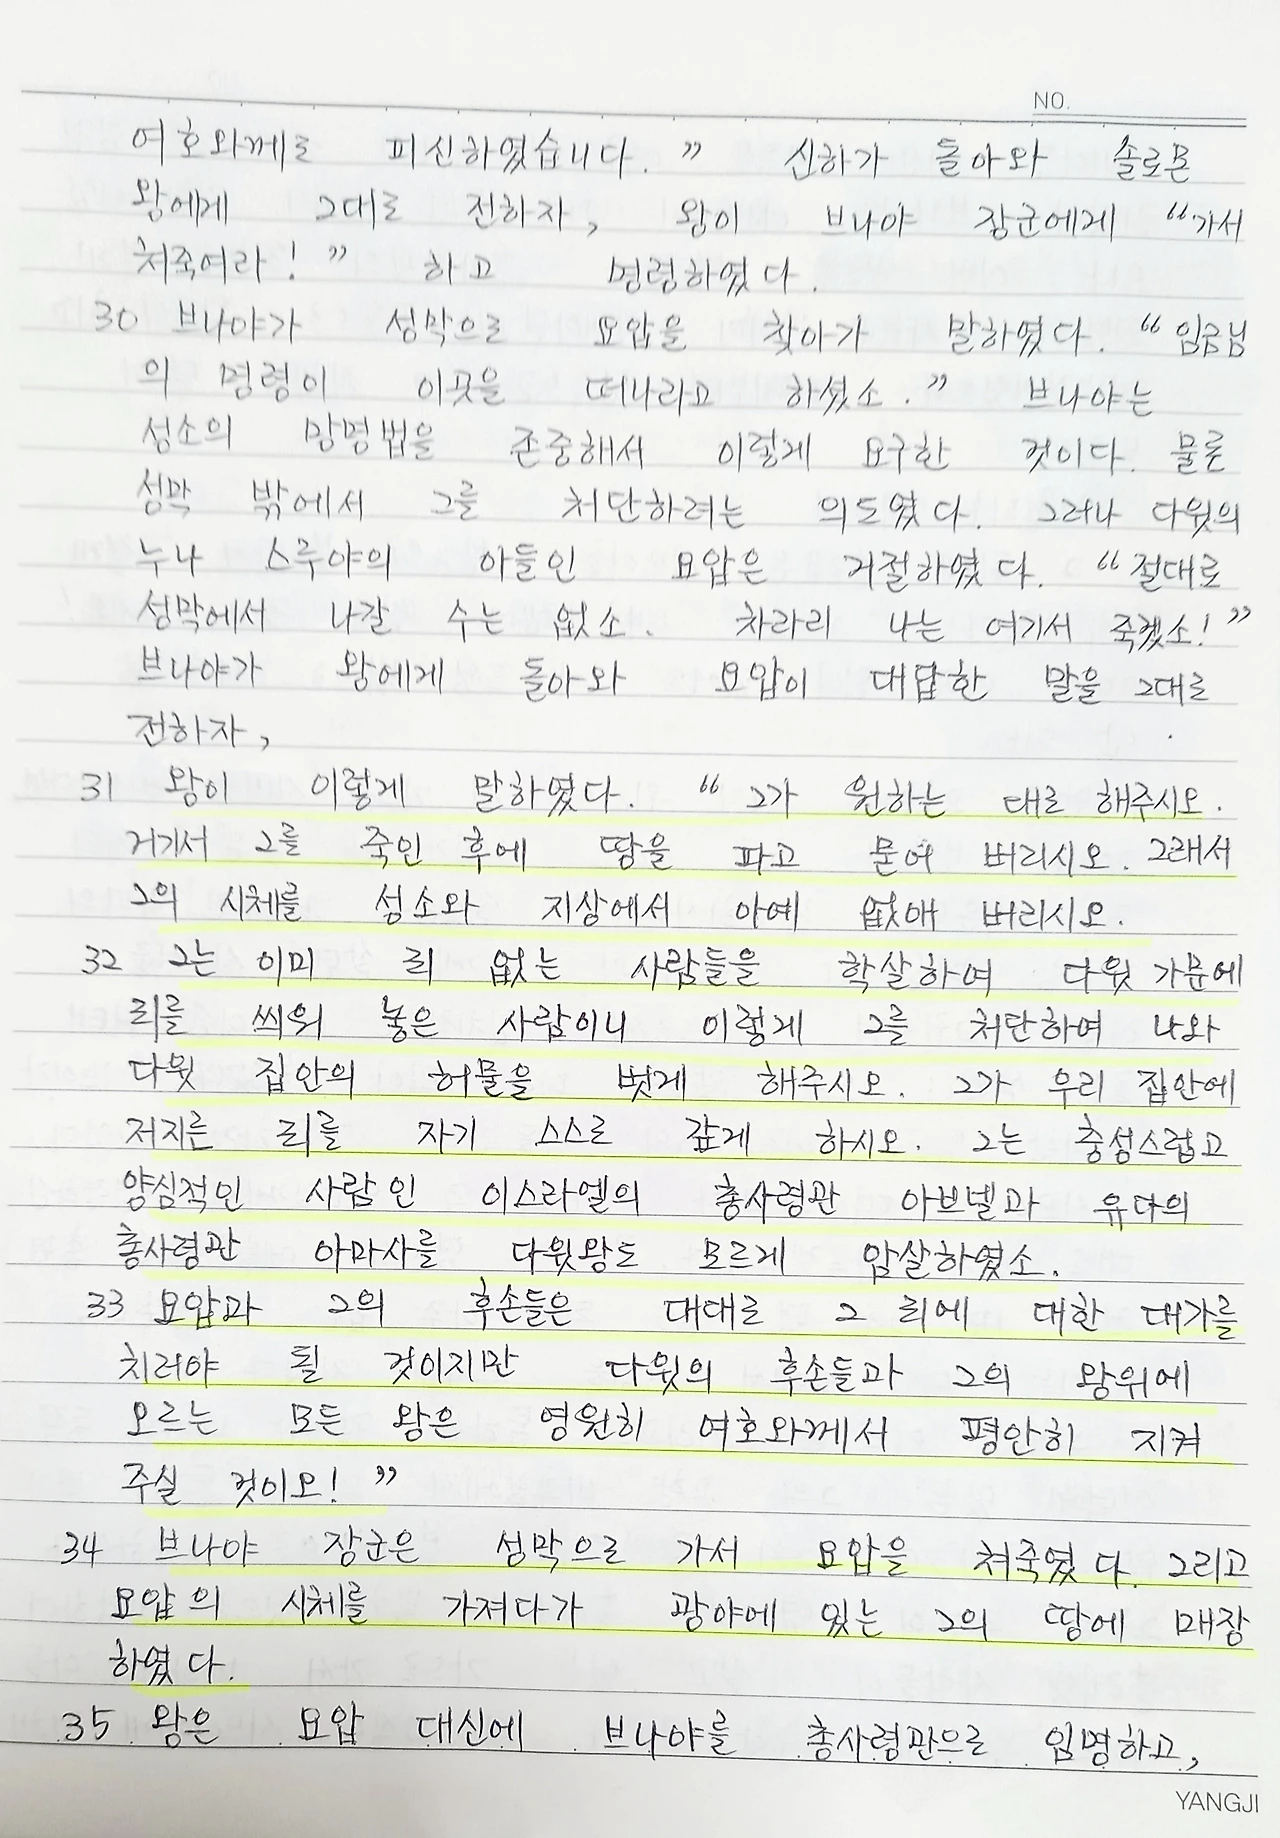 NO.
여호와께로 피신하였습니다. ” 신하가 돌아와 솔로몬
왕에게 그대로 전하자, 왕이 브나야 장군에게 “가서
쳐죽여라! ” 하고 명령하였다.
30 브나야가 성막으로 요압을 찾아가 말하였다. “임금님
의 명령이 이곳을 떠나라고 하셨소. ” 브나야는
성소의 망명법을 존중해서 이렇게 요구한 것이다. 물론
성막 밖에서 그를 처단하려는 의도였다. 그러나 다윗의
누나 스루야의 아들인 요압은 거절하였다. “절대로
성막에서 나갈 수는 없소. 차라리 나는 여기서 죽겠소!”
브나야가 왕에게 돌아와 요압이 대답한 말을 그대로
전하자,
31 왕이 이렇게 말하였다. “그가 원하는 대로 해주시오.
거기서 그를 죽인 후에 땅을 파고 묻어 버리시오. 그래서
그의 시체를 성소와 지상에서 아예 없애 버리시오.
32 그는 이미 죄 없는 사람들을 학살하여 다윗 가문에
죄를 씌워 놓은 사람이니 이렇게 그를 처단하여 나와
다윗 집안의 허물을 벗게 해주시오. 그가 우리 집안에
저지른 죄를 자기 스스로 갚게 하시오. 그는 충성스럽고
양심적인 사람인 이스라엘의 총사령관 아브넬과 유다의
총사령관 아마사를 다윗왕도 모르게 암살하였소.
33 요압과 그의 후손들은 대대로 그 죄에 대한 대가를
치러야 될 것이지만 다윗의 후손들과 그의 왕위에
오르는 모든 왕은 영원히 여호와께서 평안히 지켜
주실 것이오! ”
34 브나야 장군은 성막으로 가서 요압을 쳐죽였다. 그리고
요압의 시체를 가져다가 광야에 있는 그의 땅에 매장
하였다.
35 왕은 요압 대신에 브나야를 총사령관으로 임명하고,
YANGJI